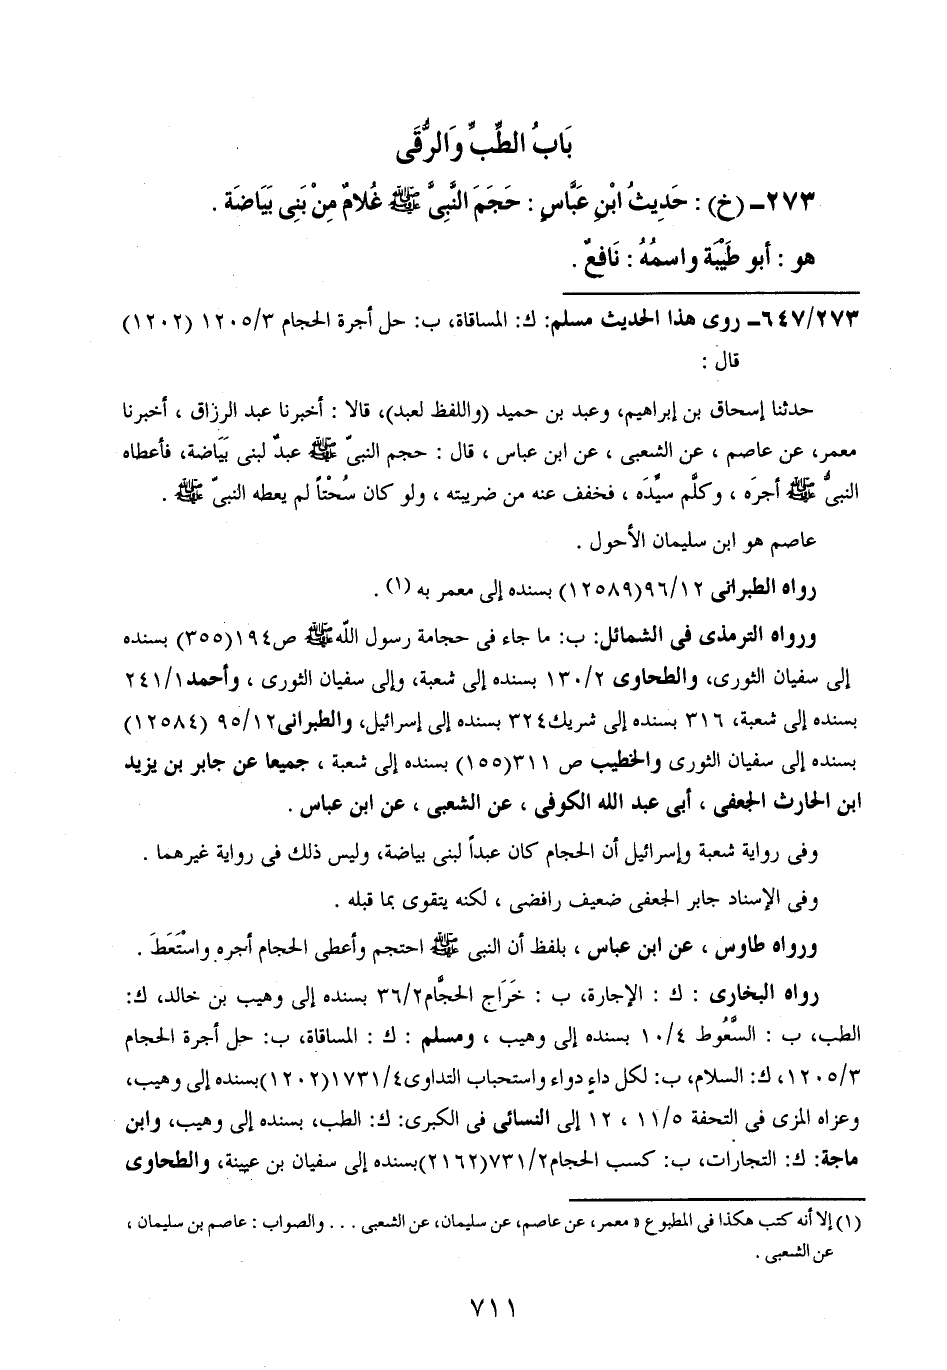 بَابُ الطِّبِّ وَالرُّقَى
٢٧٣ـ (خ) : حَدِيثُ ابْنِ عَبَّاسٍ : حَجَمَ النَّبِىَّ ﷺ غُلَامٌ مِنْ بَنِى بَيَاضَةَ .
هو : أبو طَيْبَة واسمُهُ : نَافِعٌ .
٦٤٧/٢٧٣ـ روى هذا الحديث مسلم: ك: المساقاة، ب: حل أجرة الحجام ١٢٠٥/٣ (١٢٠٢)
قال :
حدثنا إسحاق بن إبراهيم، وعبد بن حميد (واللفظ لعبد)، قالا : أخبرنا عبد الرزاق ، أخبرنا
معمر، عن عاصم ، عن الشعبى ، عن ابن عباس ، قال : حجم النبىّ ﷺ عبدٌ لبنى بَيَاضة، فأعطاه
النبىُّ ﷺ أجرَه ، وكلَّم سيِّدَه ، فخفف عنه من ضريبته ، ولو كان سُحْتاً لم يعطه النبىّ ﷺ .
عاصم هو ابن سليمان الأحول .
رواه الطبرانى ٩٦/١٢(١٢٥٨٩) بسنده إلى معمر به (١) .
ورواه الترمذى فى الشمائل: ب: ما جاء فى حجامة رسول اللّٰه ﷺ ص١٩٤(٣٥٥) بسنده
إلى سفيان الثورى، والطحاوى ١٣٠/٢ بسنده إلى شعبة، وإلى سفيان الثورى ، وأحمد٢٤١/١
بسنده إلى شعبة، ٣١٦ بسنده إلى شريك٣٢٤ بسنده إلى إسرائيل، والطبرانى٩٥/١٢ (١٢٥٨٤)
بسنده إلى سفيان الثورى والخطيب ص ٣١١(١٥٥) بسنده إلى شعبة ، جميعا عن جابر بن يزيد
ابن الحارث الجعفى ، أبى عبد الله الكوفى ، عن الشعبى ، عن ابن عباس .
وفى رواية شعبة وإسرائيل أن الحجام كان عبداً لبنى بياضة، وليس ذلك فى رواية غيرهما .
وفى الإسناد جابر الجعفى ضعيف رافضى ، لكنه يتقوى بما قبله .
ورواه طاوس ، عن ابن عباس ، بلفظ أن النبى ﷺ احتجم وأعطى الحجام أجره واسْتَعَطَ .
رواه البخارى : ك : الإجارة، ب : خَرَاج الحجَّام٣٦/٢ بسنده إلى وهيب بن خالد، ك:
الطب، ب : السَّعُوط ١٠/٤ بسنده إلى وهيب ، ومسلم : ك : المساقاة، ب: حل أجرة الحجام
١٢٠٥/٣، ك: السلام، ب: لكل داءٍ دواء واستحباب التداوى١٧٣١/٤(١٢٠٢)بسنده إلى وهيب،
وعزاه المزى فى التحفة ١١/٥ ، ١٢ إلى النسائى فى الكبرى: ك: الطب، بسنده إلى وهيب، وابن
ماجة: ك: التجارات، ب: كسب الحجام٧٣١/٢(٢١٦٢)بسنده إلى سفيان بن عيينة، والطحاوى
(١) إلا أنه كتب هكذا فى المطبوع « معمر، عن عاصم، عن سليمان، عن الشعبى . . . والصواب : عاصم بن سليمان ،
عن الشعبى .
٧١١